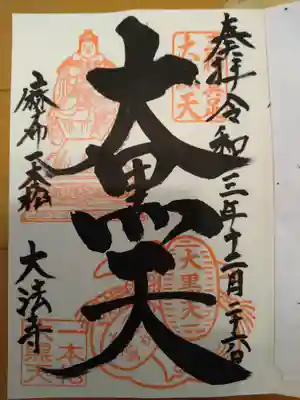 奉拝 令和三年十二月二十六日
大黒天
麻布一本松
大法寺
大黒天
三大黒天
一本松
大黒天